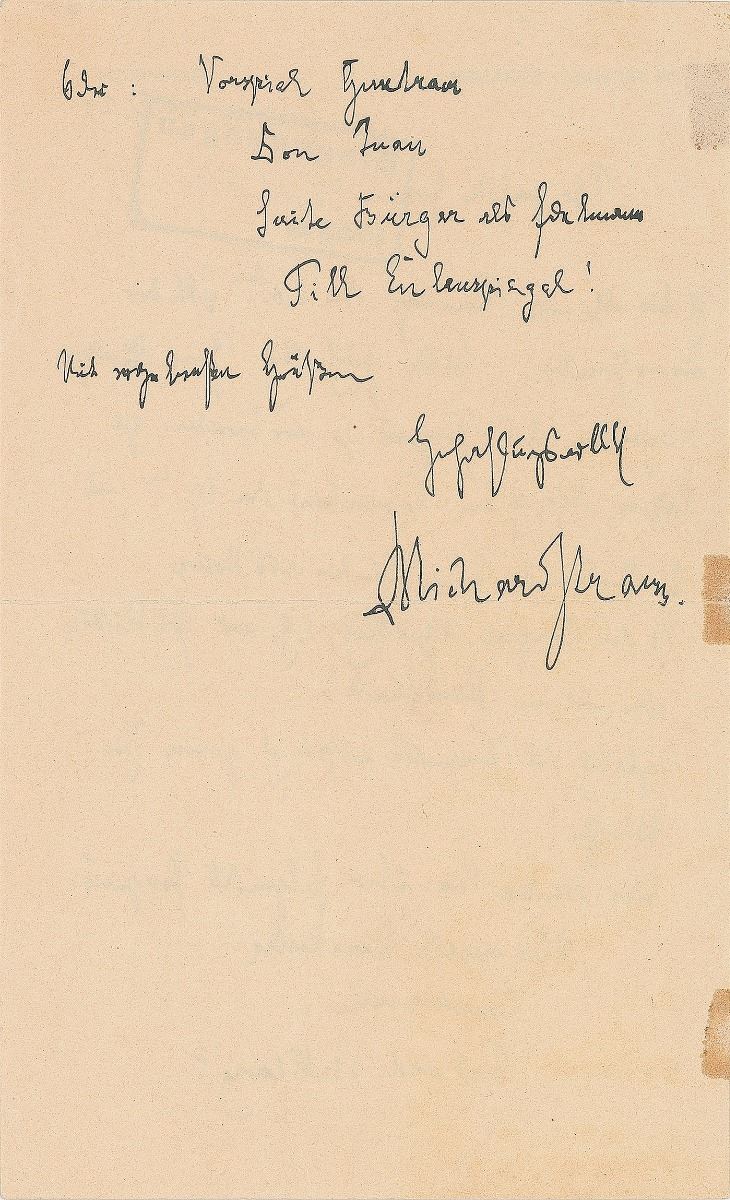 Oder: Vorspiel Guntram
Don Juan
Suite Bürger als Edelmann
Till Eulenspiegel!
Mit ergebensten Grüßen
Hochachtungsvoll
Richard Strauss.